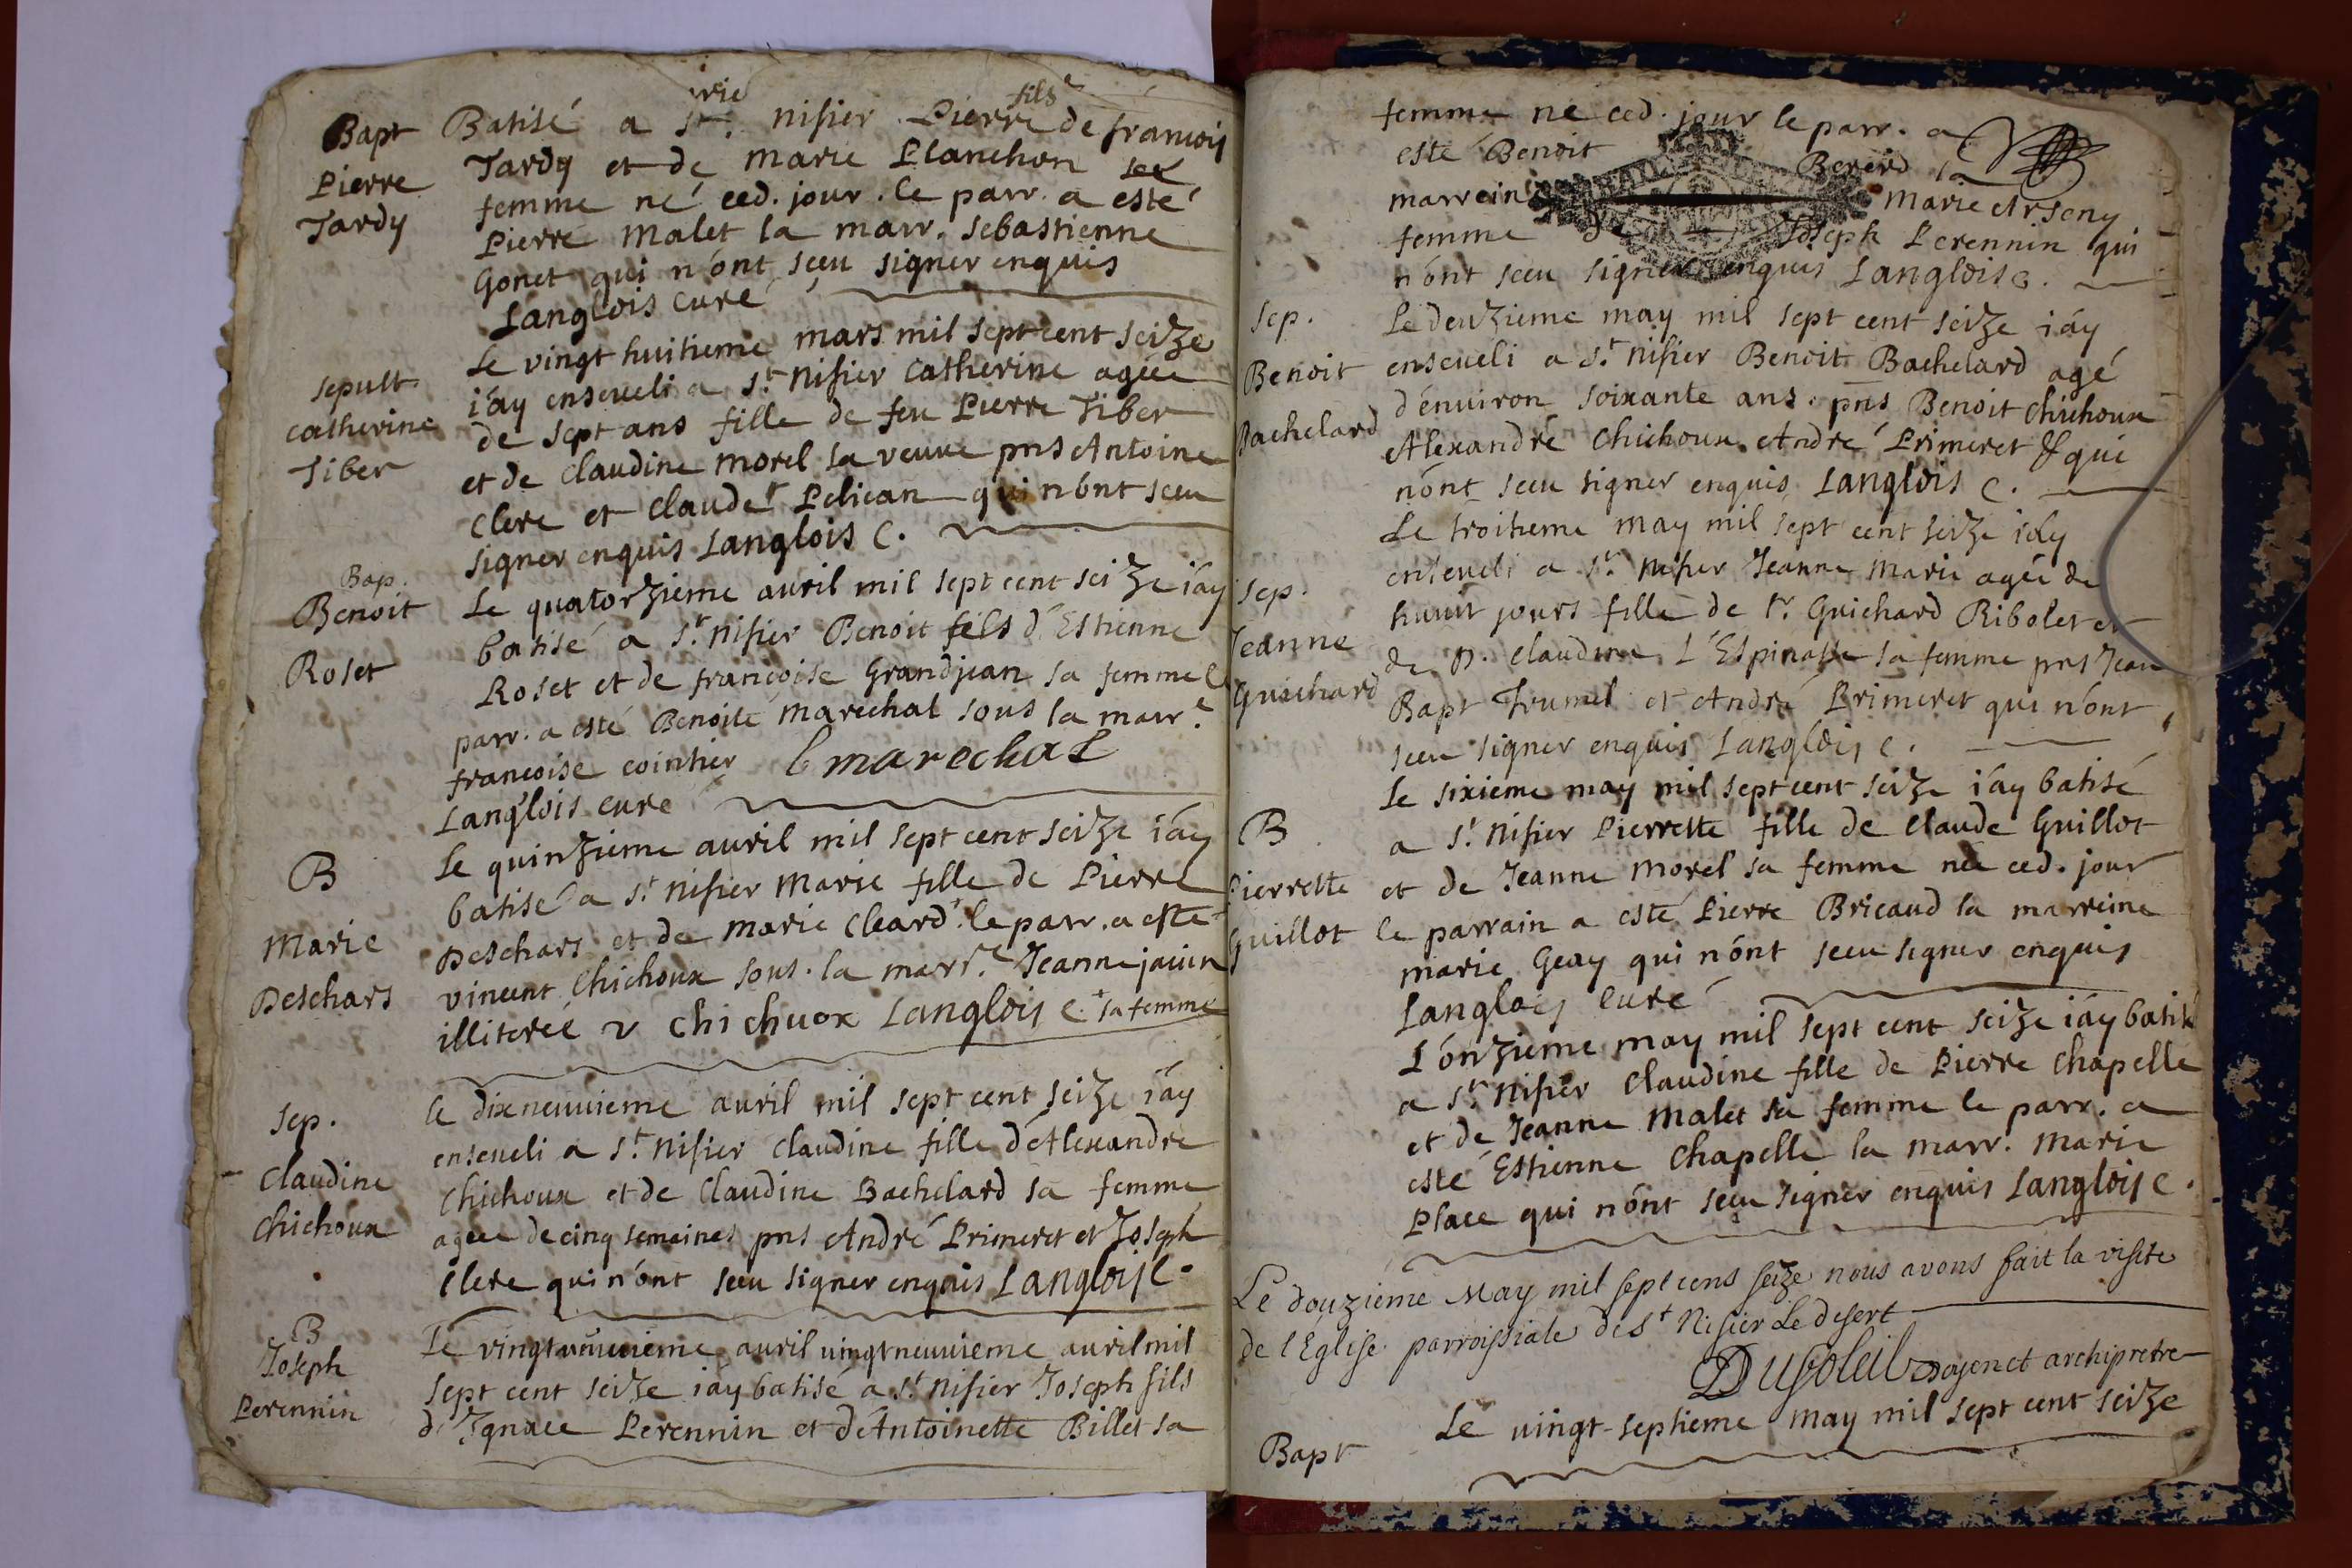 Bapt
Pierre
Tardy
Batisé a St. nisier Pierre fils de francois
Tardy et de marie Planchon sa
femme né ced. jour. le parr. a esté
Pierre malet la marr. sebastienne
Gonet qui n'ont sceu signer enquis
Langlois curé
sepult
catherine
Tiber
Le vingt huitieme mars mil sept cent seize
i'ay enseueli a St nisier catherine agée
de sept ans fille de feu Pierre Tiber
et de claudine morel sa veuve pns Antoine
clere et claude Pelican qui n'ont sceu
signer enquis Langlois C.
Bap.
Benoit
Roset
Le quatorzieme auril mil sept cent seize i'ay
batisé a St. nisier Benoit fils d'Estienne
Roset et de françoise Grandjean sa femme le
parr. a esté Benoite marechal sous la marr.e
francoise cointier b marechal
Langlois curé
B
marie
Deschars
Le quinzieme auril mil sept cent seize i'ay
batisé a St nisier marie fille de Pierre
Deschars et de marie cleard + le parr. a esté
vincent Chichoux sous. la marr.e Jeanne jauin
illiterée v chi chuox Langlois C. + sa femme
sep.
claudine
chichoux
le dixneuuieme auril mil sept cent seize i'ay
enseueli a St. nisier claudine fille d'Alexandre
chichoux et de claudine Bachelard sa femme
agée de cinq semaines pns André Primeret et Joseph
clere qui n'ont sceu signer enquis Langlois C.
B
Joseph
Perennin
Le vingtneuuieme auril uingtneuuieme auril mil
sept cent seize i'ay batisé a St nisier Joseph fils
d'Ignace Perennin et d'Antoinette Billet sa
femme né ced. jour le parr. a
esté Benoit Bererd la
marreine marie Arseny
femme de Joseph Perennin qui
n'ont sceu signer enquis Langlois C.
Sep.
Benoit
Bachelard
Le deuzieme may mil sept cent seize i'ay
enseueli a St nisier Benoit Bachelard agé
d'enuiron soixante ans. pns Benoit chichoux
Alexandre Chichoux. André Primeret & qui
n'ont sceu signer enquis Langlois C.
Sep.
Jeanne
Guichard
Le troisieme may mil sept cent seize i'ay
enseueli a St. nisier Jeanne marie agée de
huuit jours fille de Sr. Guichard Ribolet et
de D. claudine L'Espinasse sa femme pns Jean
Bapt Trumel et André Primeret qui n'ont
sceu signer enquis Langlois C.
B
Pierrette
Guillot
Le sixieme may mil sept cent seize i'ay batisé
a St nisier Pierrette fille de claude Guillot
et de Jeanne morel sa femme née ced. jour
le parrain a esté Pierre Bricaud la marreine
marie Geay qui n'ont sceu signer enquis
Langlois Curé
L'onzieme may mil sept cent seize i'ay batisé
a St. nisier claudine fille de Pierre chapelle
et de Jeanne malet sa femme le parr. a
esté Estienne Chapelle la marr. marie
Place qui n'ont sceu signer enquis Langlois C.
Le douzieme May mil sept cens seize nous avons fait la visite
de l'Eglise parroissiale de St Nisier Le desert
Dusoleil Doyen et archipretre
Bapt
Le uingt-septieme may mil sept cent seize